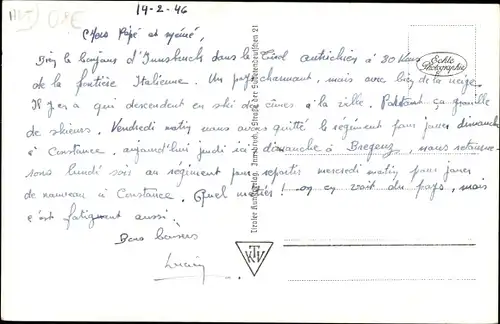 14-2-46
Chers Pépé et mémé,
Bien le bonjour d'Innsbruck dans le Tirol autrichien à 30 Kms
de la frontière Italienne. Un pays charmant, mais avec bien de la neige.
Il y en a qui descendent en ski des cimes à la ville. Partout ça grouille
de skieurs. Vendredi matin nous avons quitté le régiment pour jouer dimanche
à Constance, aujourd'hui jeudi ici dimanche à Bregenz, nous retournerons
lundi soir au régiment pour repartir mercredi matin pour jouer
de nouveau à Constance. Quel métier! on en voit du pays, mais
c'est fatiguant aussi.
Bons baisers
Lucien
Echte
Photographie
Tiroler Kunstverlag, Innsbruck, Straße der Sudetendeutschen 21
KTV